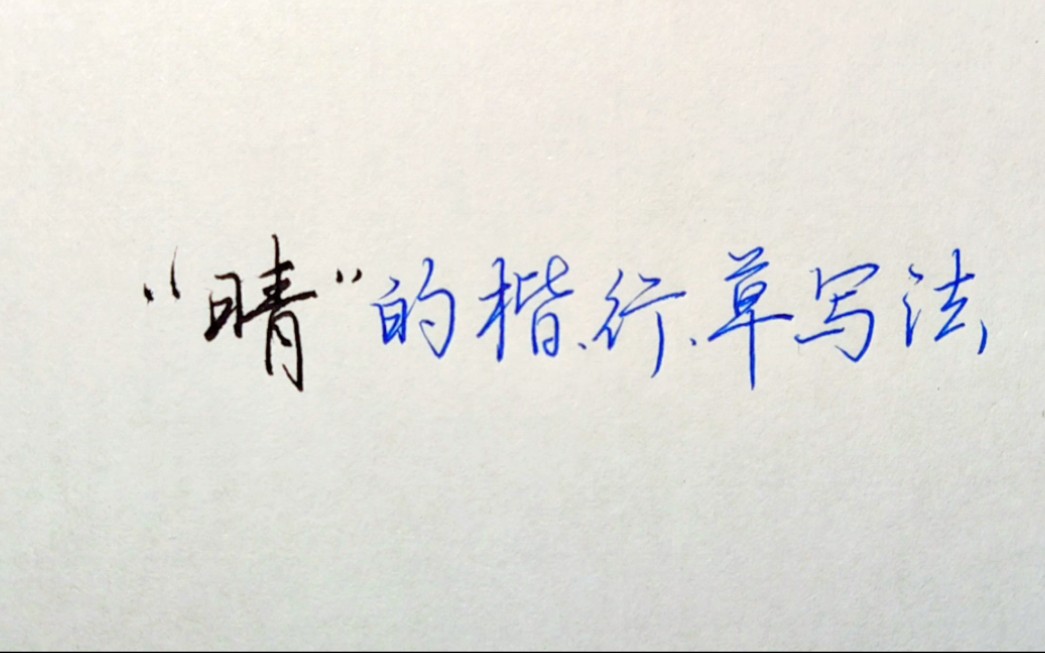 “晴”的楷、行、草写法